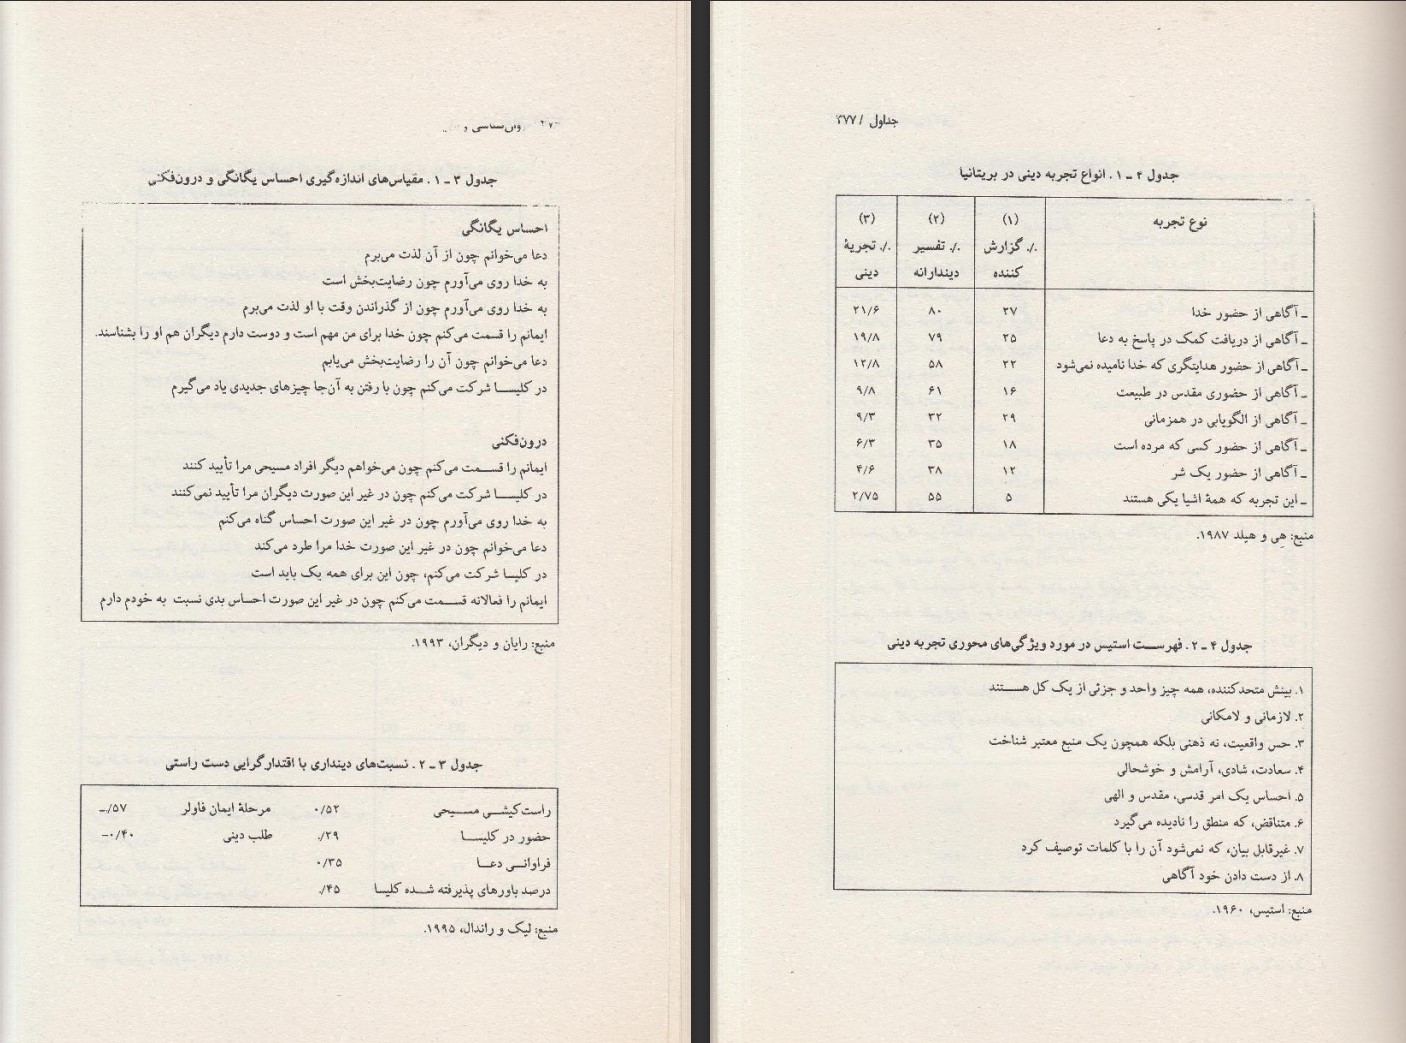 جداول / ۳۷۷
جدول ۴ ـ ۱. انواع تجربه دینی در بریتانیا
نوع تجربه (۱) (۲) (۳)
٪ گزارش ٪ تفسیر ٪ تجربهٔ
کننده دیندارانه دینی
ـ آگاهی از حضور خدا ۲۷ ۸۰ ۲۱/۶
ـ آگاهی از دریافت کمک در پاسخ به دعا ۲۵ ۷۹ ۱۹/۸
ـ آگاهی از حضور هدایتگری که خدا نامیده نمی‌شود ۲۲ ۵۸ ۱۲/۸
ـ آگاهی از حضوری مقدس در طبیعت ۱۶ ۶۱ ۹/۸
ـ آگاهی از الگویابی در همزمانی ۲۹ ۳۲ ۹/۳
ـ آگاهی از حضور کسی که مرده است ۱۸ ۳۵ ۶/۳
ـ آگاهی از حضور یک شر ۱۲ ۳۸ ۴/۶
ـ این تجربه که همهٔ اشیا یکی هستند ۵ ۵۵ ۲/۷۵
منبع: هِی و هیلد ۱۹۸۷.
جدول ۴ ـ ۲. فهرست استیس در مورد ویژگی‌های محوری تجربه دینی
۱. بینش متحدکننده، همه چیز واحد و جزئی از یک کل هستند
۲. لازمانی و لامکانی
۳. حس واقعیت، نه ذهنی بلکه همچون یک منبع معتبر شناخت
۴. سعادت، شادی، آرامش و خوشحالی
۵. احساس یک امر قدسی، مقدس و الهی
۶. متناقض، که منطق را نادیده می‌گیرد
۷. غیرقابل بیان، که نمی‌شود آن را با کلمات توصیف کرد
۸. از دست دادن خود آگاهی
منبع: استیس، ۱۹۶۰.
جدول ۳ ـ ۱. مقیاس‌های اندازه‌گیری احساس یگانگی و درون‌فکنی
احساس یگانگی
دعا می‌خوانم چون از آن لذت می‌برم
به خدا روی می‌آورم چون رضایت‌بخش است
به خدا روی می‌آورم چون از گذراندن وقت با او لذت می‌برم
ایمانم را قسمت می‌کنم چون خدا برای من مهم است و دوست دارم دیگران هم او را بشناسند.
دعا می‌خوانم چون آن را رضایت‌بخش می‌یابم
در کلیسا شرکت می‌کنم چون با رفتن به آن‌جا چیزهای جدیدی یاد می‌گیرم
درون‌فکنی
ایمانم را قسمت می‌کنم چون می‌خواهم دیگر افراد مسیحی مرا تأیید کنند
در کلیسا شرکت می‌کنم چون در غیر این صورت دیگران مرا تأیید نمی‌کنند
به خدا روی می‌آورم چون در غیر این صورت احساس گناه می‌کنم
دعا می‌خوانم چون در غیر این صورت خدا مرا طرد می‌کند
در کلیسا شرکت می‌کنم، چون این برای همه یک باید است
ایمانم را فعالانه قسمت می‌کنم چون در غیر این صورت احساس بدی نسبت به خودم دارم
منبع: رایان و دیگران، ۱۹۹۳.
جدول ۳ ـ ۲. نسبت‌های دینداری با اقتدارگرایی دست راستی
راست‌کیشی مسیحی ۰/۵۲ مرحلهٔ ایمان فاولر ‎–/۵۷
حضور در کلیسا ‎/۲۹ طلب دینی ‎–۰/۴۰
فراوانی دعا ۰/۳۵
درصد باورهای پذیرفته شده کلیسا ‎/۴۵
منبع: لیک و راندال، ۱۹۹۵.